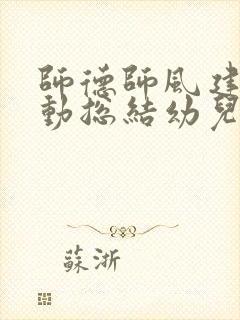 師德師風建
動總結幼兒
蘇浙